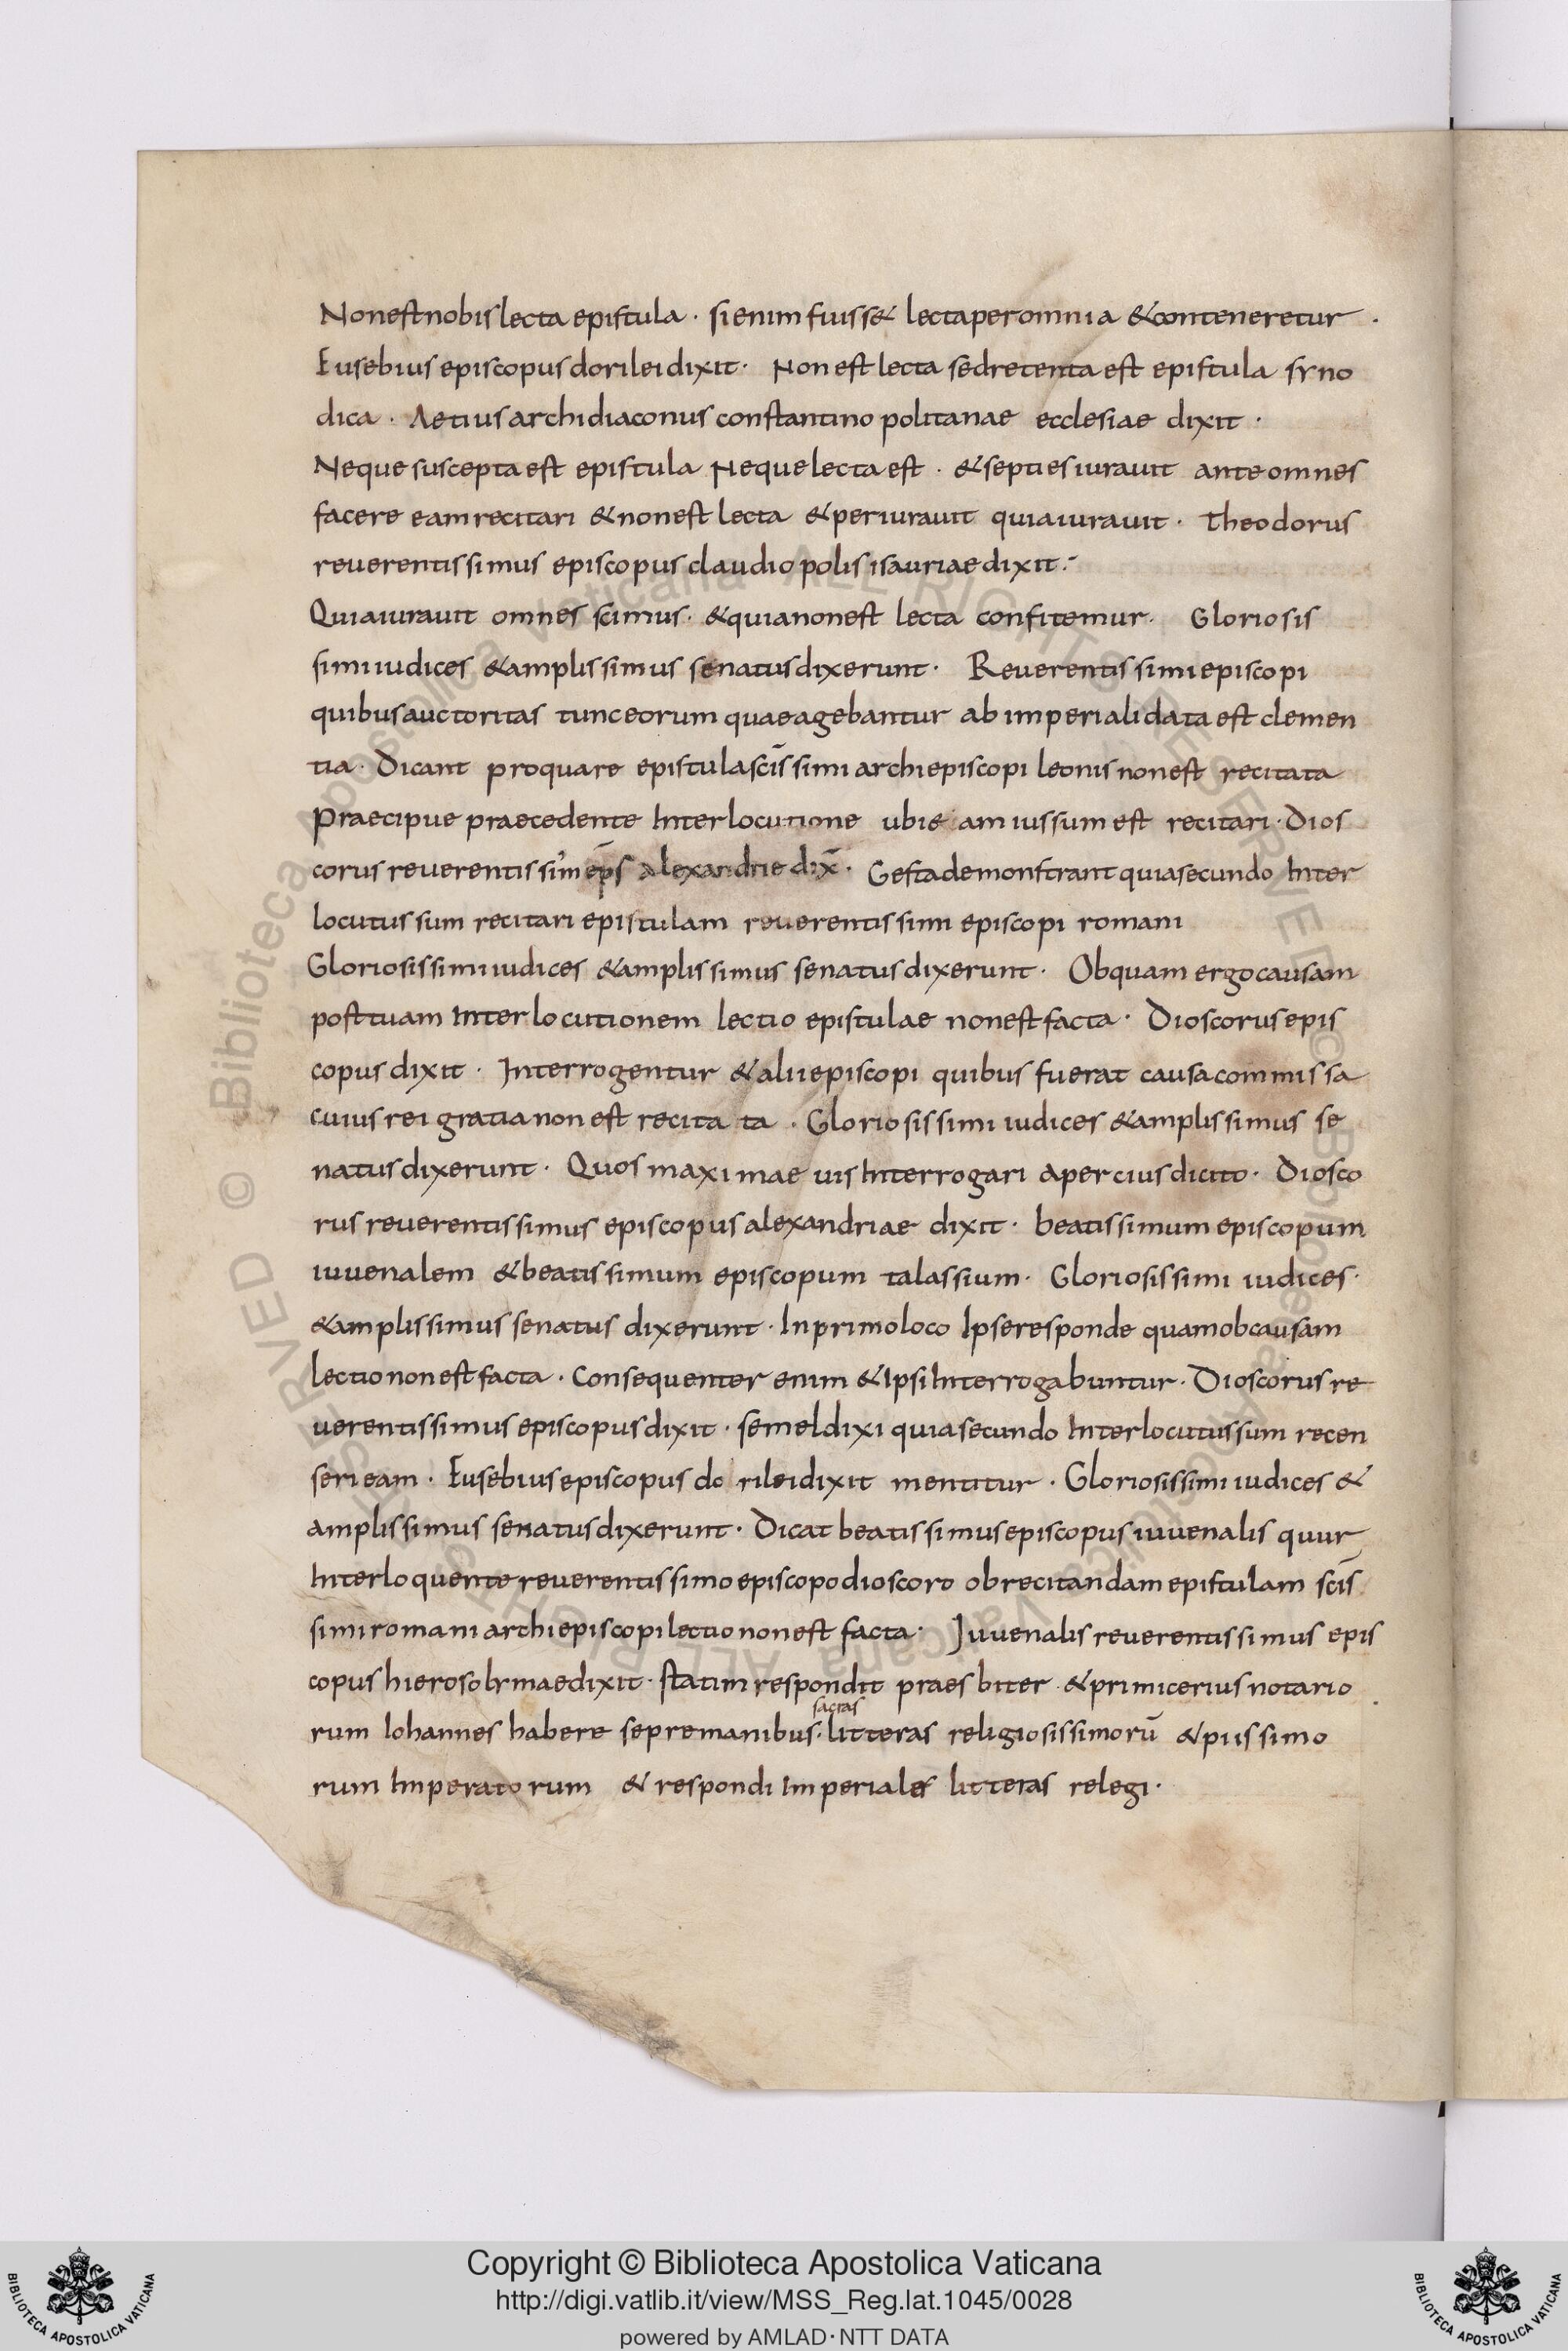 Non est nobis lecta epistula · si enim fuisset lecta per omnia & conteneretur ·
Eusebius episcopus dorilei dixit · Non est lecta sed retenta est epistula syno
dica · Aetius archidiaconus constantinopolitanae ecclesiae dixit ·
Neque suscepta est epistula Neque lecta est · & septies iurauit ante omnes
facere eam recitari & non est lecta & periurauit quia iurauit · Theodorus
reuerentissimus episcopus claudiopolis isauriae dixit ·
Quia iurauit omnes scimus · & quia non est lecta confitemur · Gloriosis
simi iudices & amplissimus senatus dixerunt · Reuerentissimi episcopi
quibus auctoritas tunc eorum quae agebantur ab imperiali data est clemen
tia · Dicant pro quare epistula scīssimi archiepiscopi leonis non est recitata
Praecipue praecedente Interlocutione ubi eam iussum est recitari · Dios
corus reuerentissim' ep̄s alexandrie dix̄ · Gesta demonstrant quia secundo Inter
locutus sum recitari epistulam reuerentissimi episcopi romani
Gloriosissimi iudices & amplissimus senatus dixerunt · Ob quam ergo causam
post tuam Interlocutionem lectio epistulae non est facta · Dioscorus epis
copus dixit · Interrogentur & alii episcopi quibus fuerat causa commissa
cuius rei gratia non est recitata · Gloriosissimi iudices & amplissimus se
natus dixerunt · Quos maximae uis Interrogari apercius dicito · Diosco
rus reuerentissimus episcopus alexandriae dixit · beatissimum episcopum
iuuenalem & beatissimum episcopum talassium · Gloriosissimi iudices ·
& amplissimus senatus dixerunt · In primo loco Ipse responde quam ob causam
lectio non est facta · Consequenter enim & Ipsi Interrogabuntur · Dioscorus re
uerentissimus episcopus dixit · semel dixi quia secundo Interlocutus sum recen
seri eam · Eusebius episcopus dorilei dixit mentitur · Gloriosissimi iudices &
amplissimus senatus dixerunt · Dicat beatissimus episcopus iuuenalis quur
Interloquente reuerentissimo episcopo dioscoro ob recitandam epistulam scīs
simi romani archiepiscopi lectio non est facta · Iuuenalis reuerentissimus epis
copus hierosolymae dixit · statim respondit praesbiter & primicerius notario
sacras
rum Iohannes habere se pre manibus · litteras religiosissimorū & piissimo
rum Imperatorum & respondi Imperiales litteras relegi ·
© Biblioteca Apostolica Vaticana ALL RIGHTS RESERVED
© Biblioteca Apostolica Vaticana ALL RIGHTS RESERVED
Copyright © Biblioteca Apostolica Vaticana
http://digi.vatlib.it/view/MSS_Reg.lat.1045/0028
powered by AMLAD·NTT DATA
BIBLIOTECA APOSTOLICA VATICANA
BIBLIOTECA APOSTOLICA VATICANA